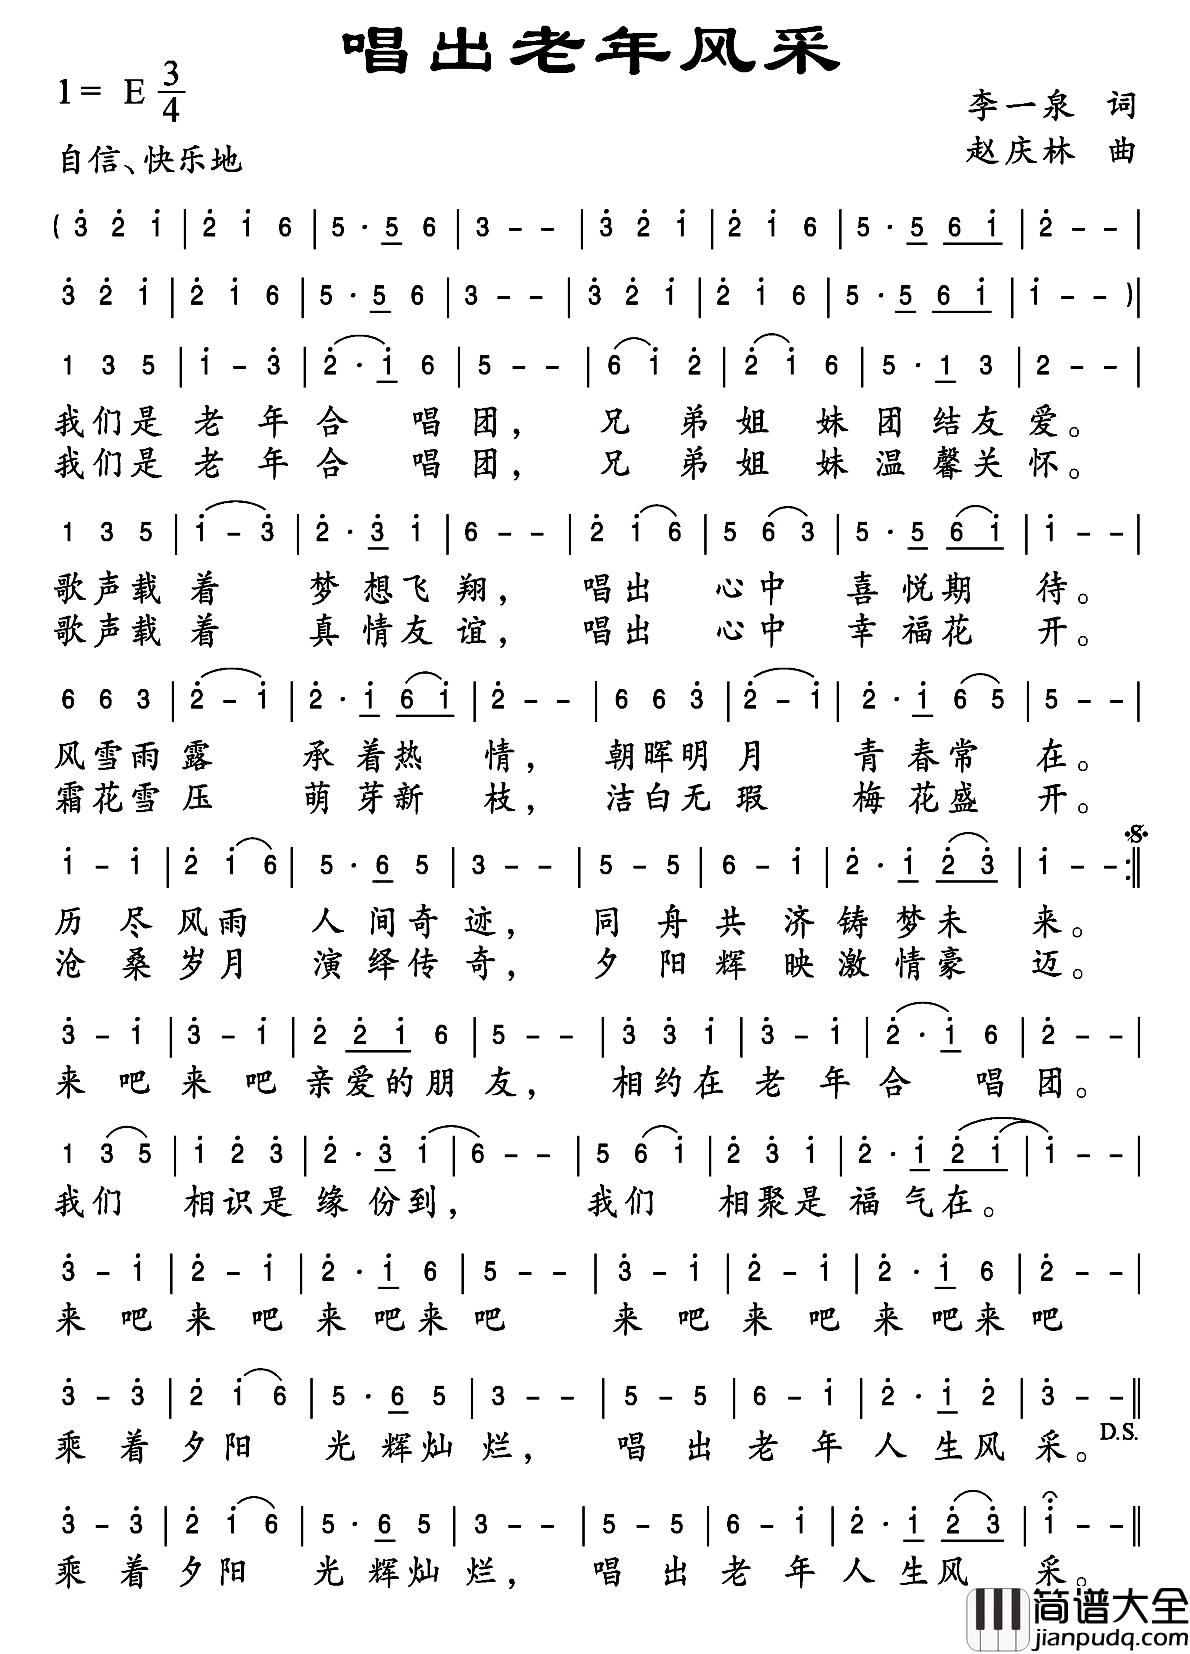 唱出老年风采
1= E 3/4
李一泉 词
自信、快乐地
赵庆林 曲
( 3̇ 2̇ 1̇ | 2̇ 1̇ 6 | 5 · 5 6 | 3 - - | 3̇ 2̇ 1̇ | 2̇ 1̇ 6 | 5 · 5 6 1̇ | 2̇ - - |
3̇ 2̇ 1̇ | 2̇ 1̇ 6 | 5 · 5 6 | 3 - - | 3̇ 2̇ 1̇ | 2̇ 1̇ 6 | 5 · 5 6 1̇ | 1̇ - - )|
1 3 5 | 1̇ - 3̇ | 2̇ · 1̇ 6 | 5 - - | 6 1̇ 2̇ | 2̇ 1̇ 6 | 5 · 1 3 | 2 - - |
我们是 老 年 合 唱 团， 兄 弟 姐 妹 团 结 友 爱。
我们是 老 年 合 唱 团， 兄 弟 姐 妹 温 馨 关 怀。
1 3 5 | 1̇ - 3̇ | 2̇ · 3̇ 1̇ | 6 - - | 2̇ 1̇ 6 | 5 6 3 | 5 · 5 6 1̇ | 1̇ - - |
歌声载 着 梦 想 飞 翔， 唱出 心中 喜 悦期 待。
歌声载 着 真 情 友 谊， 唱出 心中 幸 福花 开。
6 6 3 | 2̇ - 1̇ | 2̇ · 1̇ 6 1̇ | 2̇ - - | 6 6 3̇ | 2̇ - 1̇ | 2̇ · 1̇ 6 5 | 5 - - |
风雪雨 露 承 着热 情， 朝晖明 月 青 春常 在。
霜花雪 压 萌 芽新 枝， 洁白无 瑕 梅 花盛 开。
1̇ - 1̇ | 2̇ 1̇ 6 | 5 · 6 5 | 3 - - | 5 - 5 | 6 - 1̇ | 2̇ · 1̇ 2̇ 3̇ | 1̇ - - :‖
历 尽 风雨 人 间奇 迹， 同 舟 共 济 铸 梦未 来。
沧 桑 岁月 演 绎传 奇， 夕 阳 辉 映 激 情豪 迈。
3̇ - 1̇ | 3̇ - 1̇ | 2̇ 2̇ 1̇ 6 | 5 - - | 3̇ 3̇ 1̇ | 3̇ - 1̇ | 2̇ · 1̇ 6 | 2̇ - - |
来 吧 来 吧 亲爱的朋 友， 相约在 老 年 合 唱 团。
1 3 5 | 1̇ 2̇ 3̇ | 2̇ · 3̇ 1̇ | 6 - - | 5 6 1̇ | 2̇ 3̇ 1̇ | 2̇ · 1̇ 2̇ 1̇ | 1̇ - - |
我们 相识是 缘 份到， 我们 相聚是 福 气在。
3̇ - 1̇ | 2̇ - 1̇ | 2̇ · 1̇ 6 | 5 - - | 3̇ - 1̇ | 2̇ - 1̇ | 2̇ · 1̇ 6 | 2̇ - - |
来 吧 来 吧 来 吧来 吧 来 吧 来 吧 来 吧来 吧
3̇ - 3̇ | 2̇ 1̇ 6 | 5 · 6 5 | 3 - - | 5 - 5 | 6 - 1̇ | 2̇ · 1̇ 2̇ | 3̇ - - ‖
乘 着 夕阳 光 辉灿 烂， 唱 出 老 年 人 生风 采。 D.S.
3̇ - 3̇ | 2̇ 1̇ 6 | 5 · 6 5 | 3 - - | 5 - 5 | 6 - 1̇ | 2̇ · 1̇ 2̇ 3̇ | 1̇ - - ‖
乘 着 夕阳 光 辉灿 烂， 唱 出 老 年 人 生风 采。
简谱大全
jianpudq.com